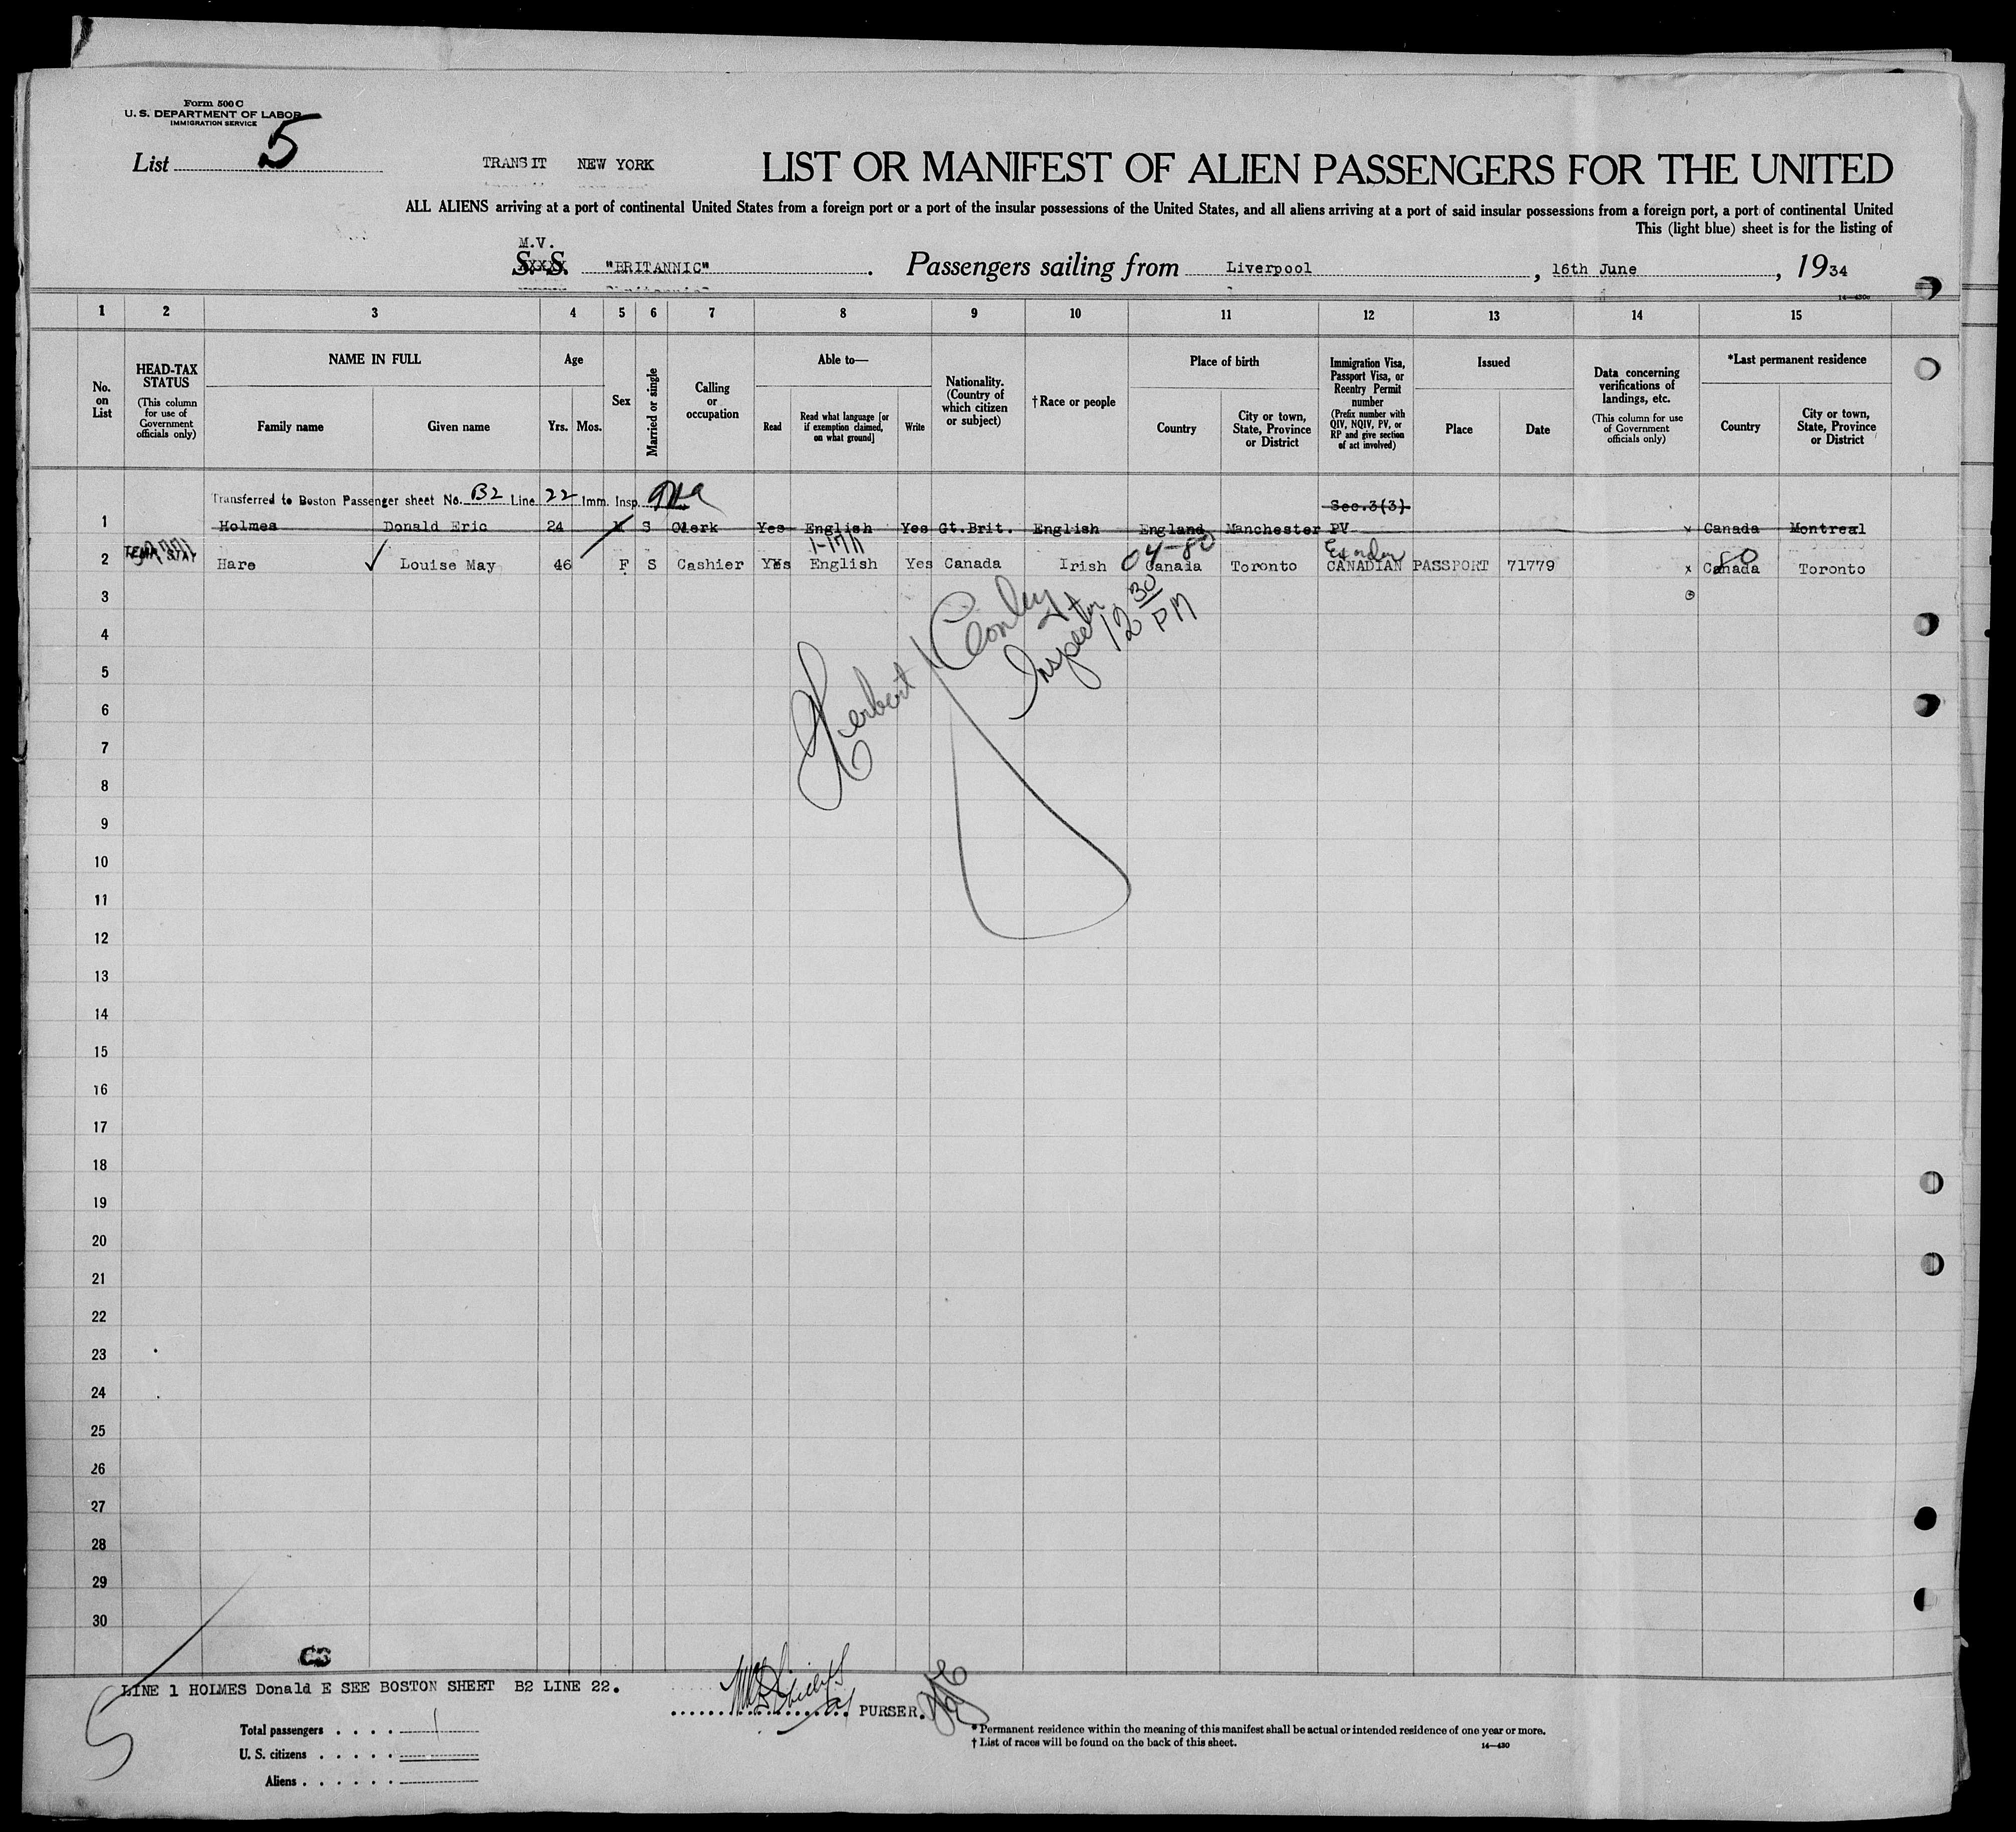 Form 500 C
U. S. DEPARTMENT OF LABOR
IMMIGRATION SERVICE
List 5
TRANSIT NEW YORK
LIST OR MANIFEST OF ALIEN PASSENGERS FOR THE UNITED
ALL ALIENS arriving at a port of continental United States from a foreign port or a port of the insular possessions of the United States, and all aliens arriving at a port of said insular possessions from a foreign port, a port of continental United
This (light blue) sheet is for the listing of
M.V.
S. S. "BRITANNIC" . Passengers sailing from Liverpool , 16th June , 1934
14—430c
1 2 3 4 5 6 7 8 9 10 11 12 13 14 15
No. on List
HEAD-TAX STATUS
(This column for use of Government officials only)
NAME IN FULL
Family name
Given name
Age
Yrs. Mos.
Sex
Married or single
Calling or occupation
Able to—
Read
Read what language [or if exemption claimed, on what ground]
Write
Nationality. (Country of which citizen or subject)
†Race or people
Place of birth
Country
City or town, State, Province or District
Immigration Visa, Passport Visa, or Reentry Permit number
(Prefix number with QIV, NQIV, PV, or RP and give section of act involved)
Issued
Place
Date
Data concerning verifications of landings, etc.
(This column for use of Government officials only)
*Last permanent residence
Country
City or town, State, Province or District
Transferred to Boston Passenger sheet No. B2 Line 22 Imm. Insp.
Sec.3(3)
1 Holmes Donald Eric 24 M S Clerk Yes English Yes Gt.Brit. English England Manchester PV x Canada Montreal
TEMP STAY
2 Hare ✓ Louise May 46 F S Cashier Yes English Yes Canada Irish Canada Toronto CANADIAN PASSPORT 71779 x Canada Toronto
3
4
5
6
7
8
9
10
11
12
13
14
15
16
17
18
19
20
21
22
23
24
25
26
27
28
29
30
Herbert Conley
Inspector
12 30 PM
LINE 1 HOLMES Donald E SEE BOSTON SHEET B2 LINE 22.
PURSER.
Total passengers . . . . 1
U. S. citizens . . . . .
Aliens . . . . . .
5
* Permanent residence within the meaning of this manifest shall be actual or intended residence of one year or more.
† List of races will be found on the back of this sheet.
14—430